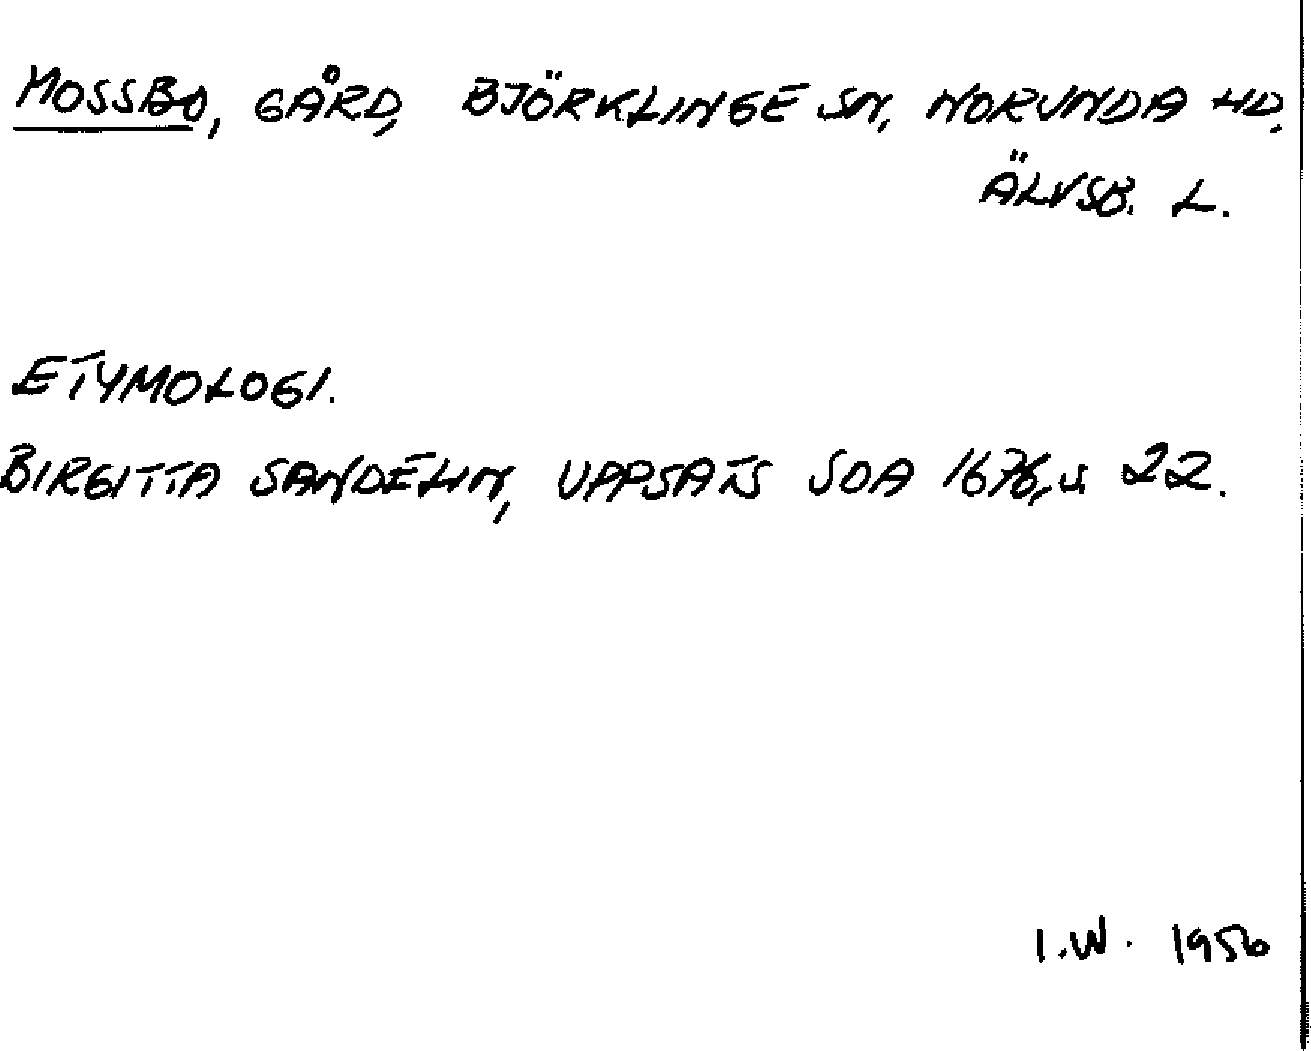 MOSSBO, GÅRD, BJÖRKLINGE SN, NORUNDA HD,
ÄLVSB. L.
ETYMOLOGI.
BIRGITTA SANDELIN, UPPSATS SOA 1676, s 22.
I.W. 1956